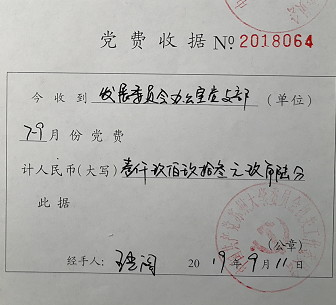 党费收据 №2018064
今收到 发展委员会办公室党支部 (单位)
7-9月份党费
计人民币(大写) 壹仟玖佰玖拾叁元玖角陆分
此据
(公章)
经手人: 2019年9月11日